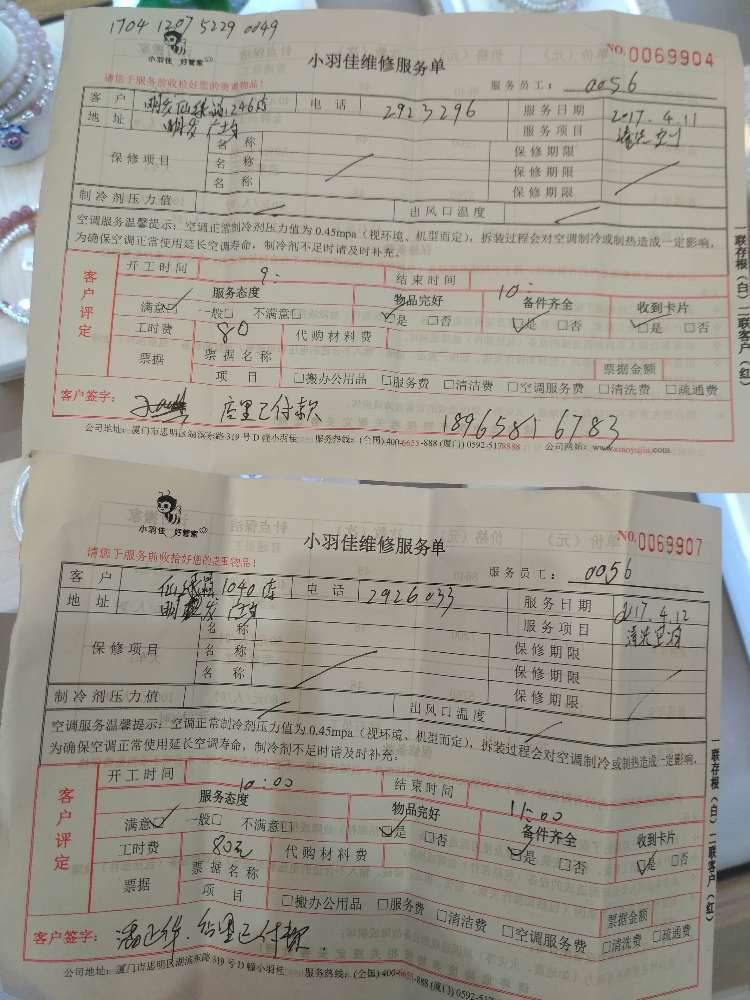 1704 1207 5229 0049
小羽佳 好管家
小羽佳维修服务单
NO.0069904
请您于服务前收拾好您的贵重物品!
服务员工: 0056
客户 246店 电话 2923296 服务日期 2017.4.11
地址 明发广场 服务项目 清洗空调
保修项目 名称 保修期限
名称 保修期限
名称 保修期限
制冷剂压力值 出风口温度
空调服务温馨提示:空调正常制冷剂压力值为0.45mpa(视环境、机型而定),拆装过程会对空调制冷或制热造成一定影响,
为确保空调正常使用延长空调寿命,制冷剂不足时请及时补充。
客户评定
开工时间 9:- 结束时间 10:-
服务态度 物品完好 备件齐全 收到卡片
满意□ 一般□ 不满意□ □是 □否 □是 □否 □是 □否
工时费 80 代购材料费
票据 票据名称 票据金额
项目 □搬办公用品 □服务费 □清洁费 □空调服务费 □清洗费 □疏通费
客户签字: 店里已付款 18965816783
公司地址:厦门市思明区湖滨东路319号D幢小羽佳 服务热线:(全国)400-6655-888 (厦门) 0592-5178888 公司网站:www.xmoyujia.com
一联存根(白) 二联客户(红)
小羽佳 好管家
小羽佳维修服务单
NO.0069907
请您于服务前收拾好您的贵重物品!
服务员工: 0056
客户 1040店 电话 2926033 服务日期 2017.4.12
地址 明发广场 服务项目 清洗空调
保修项目 名称 保修期限
名称 保修期限
名称 保修期限
制冷剂压力值 出风口温度
空调服务温馨提示:空调正常制冷剂压力值为0.45mpa(视环境、机型而定),拆装过程会对空调制冷或制热造成一定影响,
为确保空调正常使用延长空调寿命,制冷剂不足时请及时补充。
客户评定
开工时间 10:00 结束时间 11:00
服务态度 物品完好 备件齐全 收到卡片
满意□ 一般□ 不满意□ □是 □否 □是 □否 □是 □否
工时费 80元 代购材料费
票据 票据名称 票据金额
项目 □搬办公用品 □服务费 □清洁费 □空调服务费 □清洗费 □疏通费
客户签字: 店里已付款
公司地址:厦门市思明区湖滨东路319号D幢小羽佳 服务热线:(全国)400-6655-888 (厦门) 0592-517
一联存根(白) 二联客户(红)